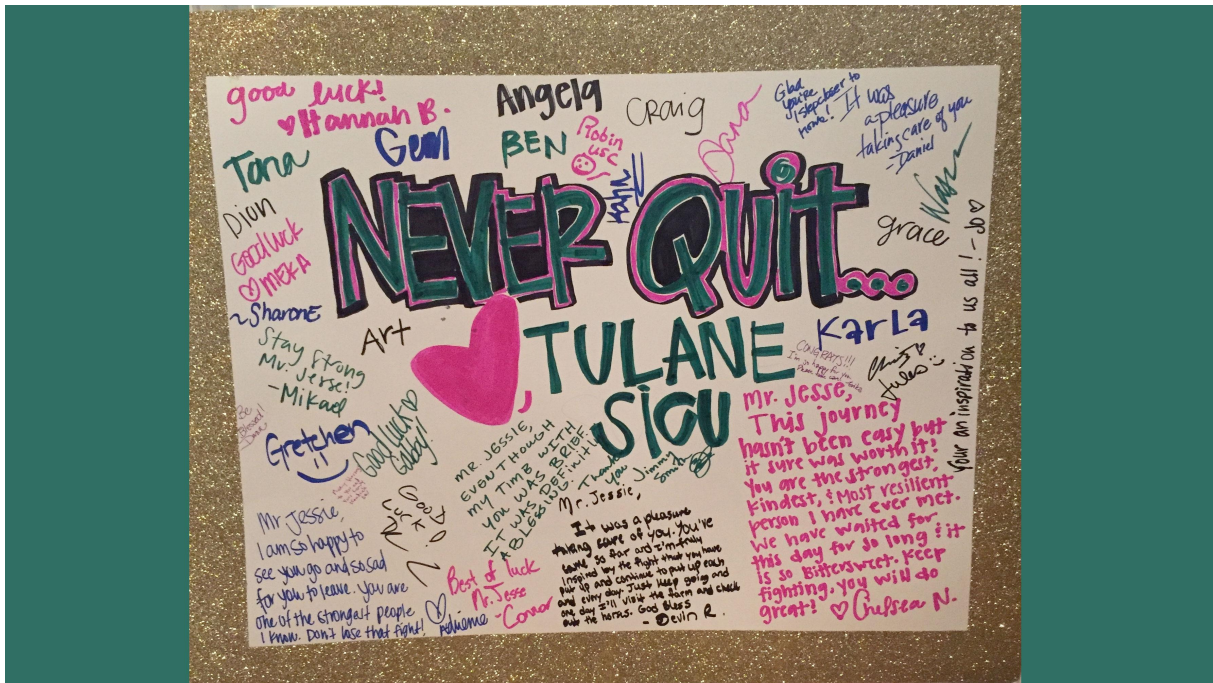 good luck!
♡Hannah B.
Angela
Craig
Dana
Glad
you're
1 step closer to
home!
It was
a pleasure
taking care of you
-Daniel
Tana
Gem
BEN
Robin
USC
Dion
NEVER QUIT...
grace
Good luck
♡MEKA
~SharonE
Art
♡, TULANE
SICU
Karla
CONGRATS!!!
I'm so happy for you
Jules
Your an inspiration to us all! - Jo♡
Stay Strong
Mr. Jesse!
-Mikael
Be
Blessed!
Gretchen
Good Luck♡
Gabby!
MR. JESSIE,
EVEN THOUGH
MY TIME WITH
YOU WAS BRIEF.
IT WAS DEFINITELY
A BLESSING.
Thank
you
Jimmy
Smith
Mr. Jesse,
This journey
hasn't been easy but
it sure was worth it!
You are the strongest,
kindest, & most resilient
person I have ever met.
We have waited for
this day for so long & it
is so Bittersweet. Keep
fighting, you will do
great! ♡Chelsea N.
Mr Jessie,
I am so happy to
see you go and so sad
for you to leave. You are
one of the strongest people
I know. Don't lose that fight!
♡
Adrienne
GOOD
LUCK!
Best of luck
Mr. Jesse
-Connor
Mr. Jessie,
It was a pleasure
taking care of you. You've
came so far and I'm truly
inspired by the fight that you have
put up and continue to put up each
and every day. Just keep going and
one day I'll visit the farm and check
out the horses. God Bless
- Devin R.